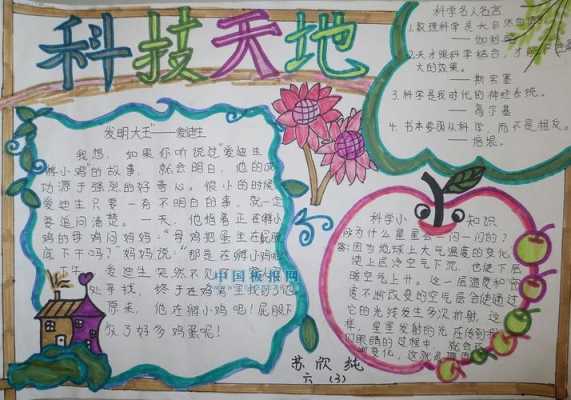 科技天地
发明大王"——爱迪生
我想,如果你听说过"爱迪生
孵小鸡"的故事,就会明白,他的成
功源于强烈的好奇心。很小的时候
爱迪生只要一有不明白的事,就一定
要追问清楚。一天,他指着正在孵小
鸡的母鸡问妈妈:"母鸡把蛋坐在屁股
底下干吗?"妈妈说
爱迪生突然不见
处寻找,终于在鸡窝里找到了他
原来,他在孵小鸡呢!屁股下
放了好多鸡蛋呢!
中国板报网
科学名人名言
1.数理科学是大自然的语言。
——伽利略
2.天才跟科学结合,才
大的效果。
——斯宾塞
3.科学是我时代的神经系统。
——高尔基
4.书本要随从科学,而不是相反。
——培根。
科学小知识
为什么星星会一闪一闪的?
答:因为地球上大气温度的变化,
使上层冷空气下沉,也使下层
暖空气上升。这一层温度和密
度不断改变的空气层会使通过
它的光线发生多次折射,这
样,星星发射的光在传到
们眼睛的过程中,就会
变化,这就
苏欣纯
六(3)